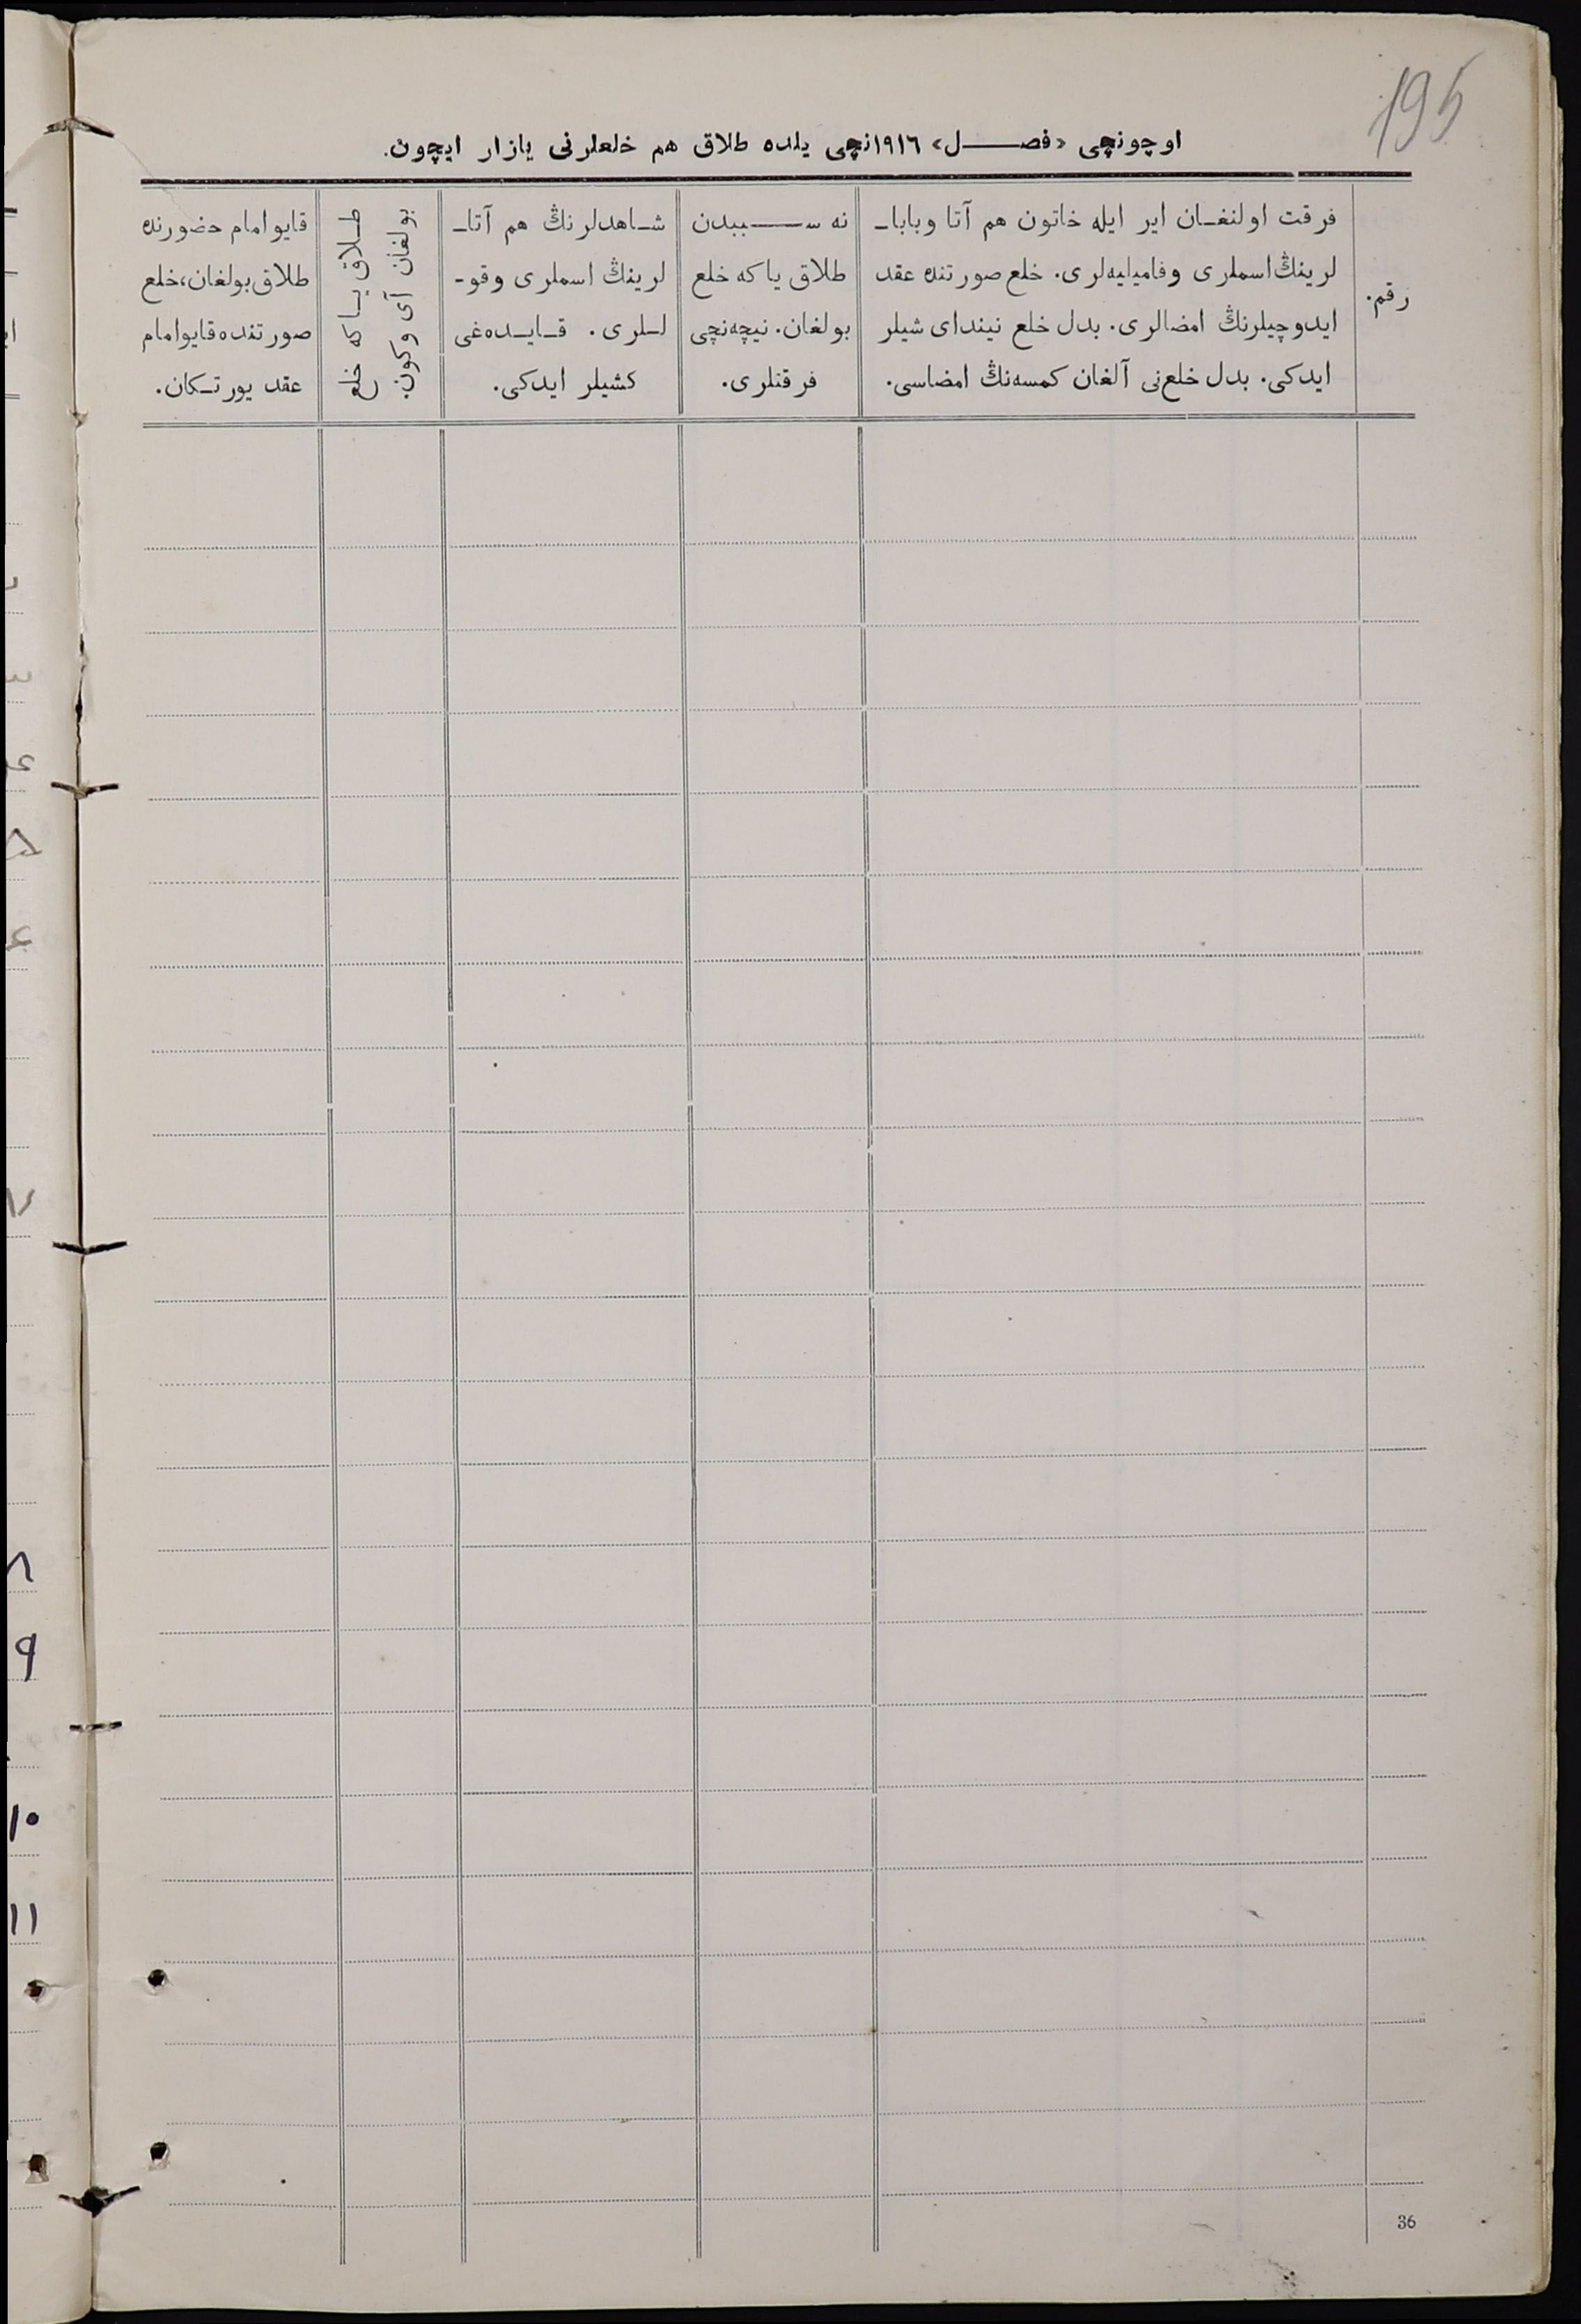 195
اوچونچی «فصـــل» ١٩١٦نچی یلده طلاق هم خلعلرنی یازار ایچون.
رقم.
فرقت اولنغـان ایر ایله خاتون هم آتا وباباـ
لرینڭ اسملری وفامیلیه‌لری. خلع صورتنده عقد
ایدوچیلرنڭ امضالری. بدل خلع نیندای شیلر
ایدکی. بدل خلع‌نی آلغان کمسه‌نڭ امضاسی.
نه ســـببدن
طلاق یا که خلع
بولغان. نیچه‌نچی
فرقتلری.
شـاهدلرنڭ هم آتاـ
لرینڭ اسملری وقوـ
لـلری. قـایـده‌غی
کشیلر ایدکی.
طـلاق یـا که خلع
بولغان آی وکون.
قایو امام حضورنده
طلاق بولغان، خلع
صورتنده قایو امام
عقد یورتـکان.
36
٨
٩
١٠
١١